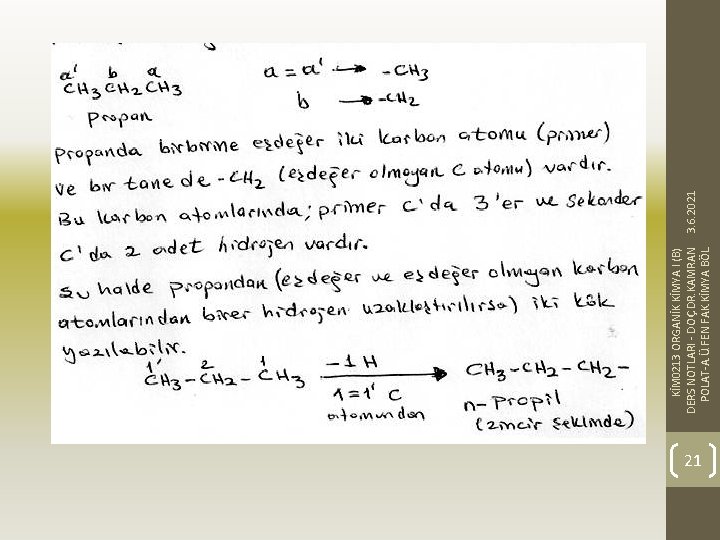 a' b a
CH3 CH2 CH3
Propan
a = a' → -CH3
b → -CH2
Propanda birbirine eşdeğer iki karbon atomu (primer)
ve bir tane de -CH2 (eşdeğer olmayan C atomu) vardır.
Bu karbon atomlarında; primer C'da 3'er ve sekonder
C'da 2 adet hidrojen vardır.
Şu halde propandan (eşdeğer ve eşdeğer olmayan karbon
atomlarından birer hidrojen uzaklaştırılırsa) iki kök
yazılabilir.
1' 2 1
CH3-CH2-CH3
-1 H
1=1' C
atomundan
CH3-CH2-CH2-
n-Propil
(zincir şeklinde)
KİM0213 ORGANİK KİMYA I (B)
DERS NOTLARI - DOÇ.DR.KAMRAN
POLAT-A.Ü.FEN FAK KİMYA BÖL
3.6.2021
21